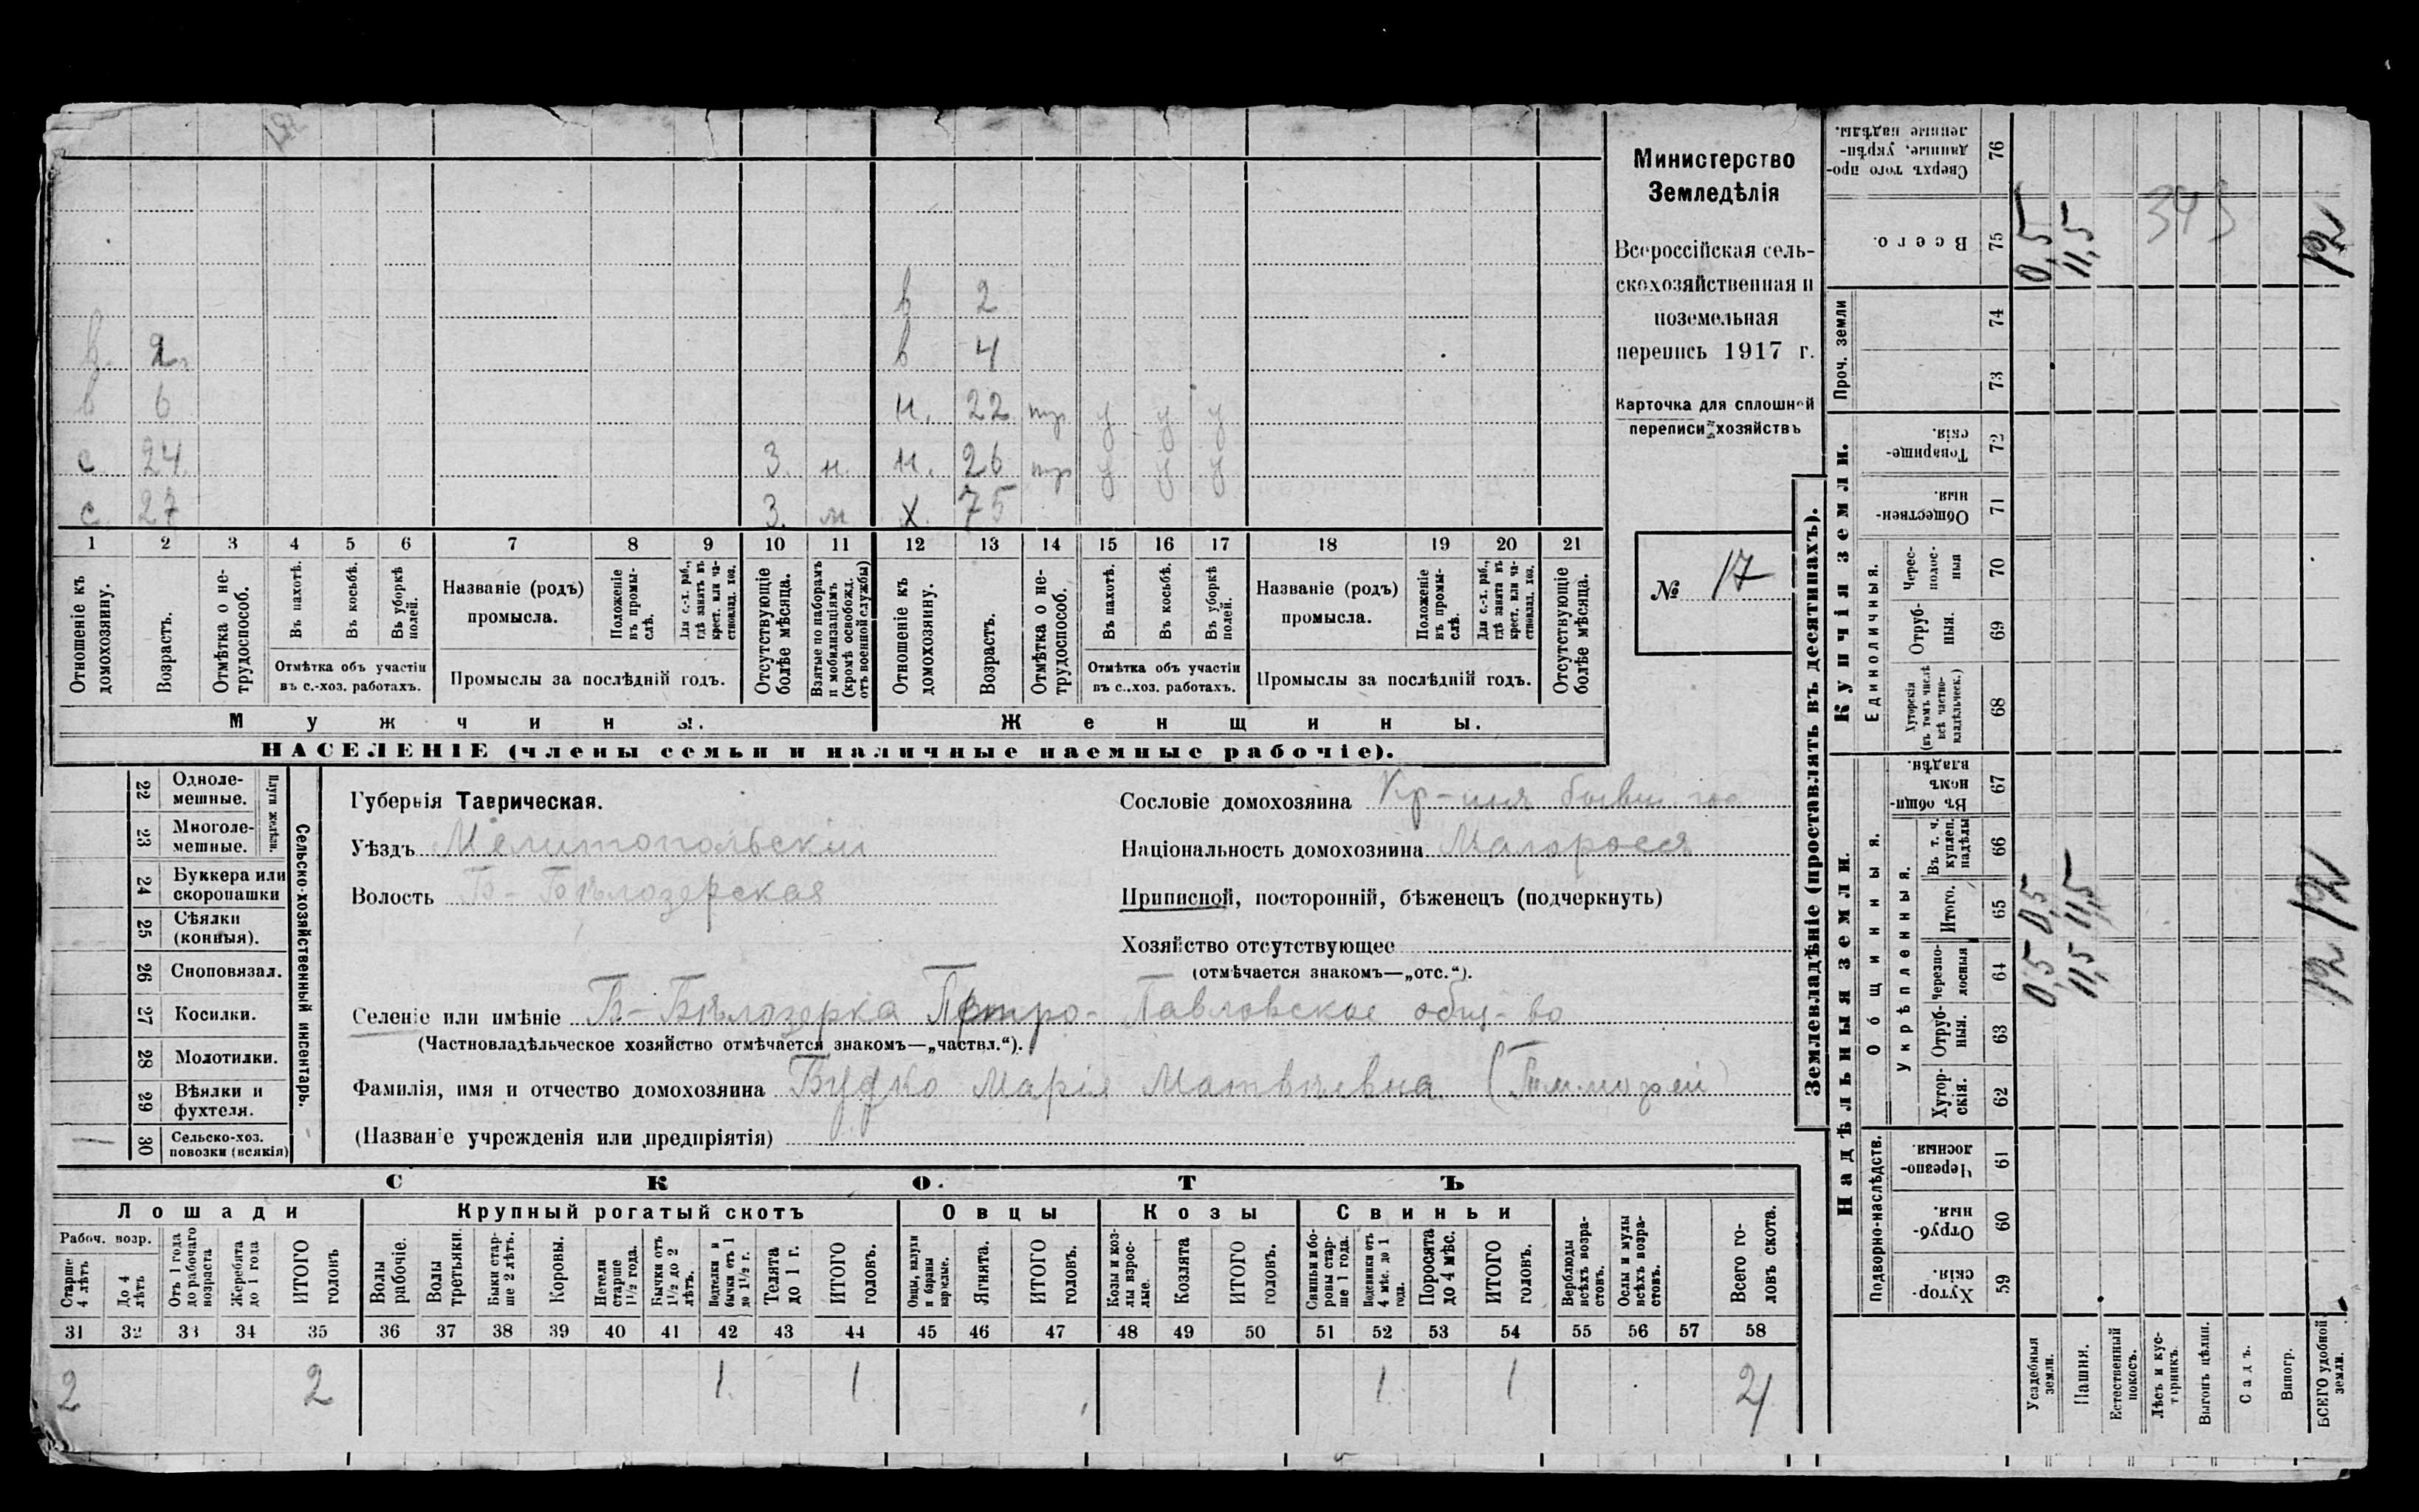 в 2
в. 2 в 4
в 6 н. 22 тр у у у
с. 24 3. н. н. 26 тр у у у
с. 27 3. н х. 75
1 2 3 4 5 6 7 8 9 10 11 12 13 14 15 16 17 18 19 20 21
Отношеніе къ домохозяину.
Возрастъ.
Отмѣтка о не-трудоспособ.
Въ пахотѣ.
Въ косьбѣ.
Въ уборкѣ полей.
Отмѣтка объ участіи въ с.-хоз. работахъ.
Названіе (родъ) промысла.
Положеніе въ промы-слѣ.
Для с.-х. раб., гдѣ занятъ въ крест. или ча-стновлад. хоз.
Промыслы за послѣдній годъ.
Отсутствующіе болѣе мѣсяца.
Взятые по наборамъ и мобилизаціямъ (кромѣ освобожд. отъ военной службы)
Отношеніе къ домохозяину.
Возрастъ.
Отмѣтка о не-трудоспособ.
Въ пахотѣ.
Въ косьбѣ.
Въ уборкѣ полей.
Отмѣтка объ участіи въ с..хоз. работахъ.
Названіе (родъ) промысла.
Положеніе въ промы-слѣ.
Для с.-х. раб., гдѣ занята въ крест. или ча-стновлад. хоз.
Промыслы за послѣдній годъ.
Отсутствующіе болѣе мѣсяца.
Мужчины.
Женщины.
НАСЕЛЕНІЕ (члены семьи и наличные наемные рабочіе).
Министерство
Земледѣлія
Всероссійская сель-
скохозяйственная и
поземельная
перепись 1917 г.
Карточка для сплошной
переписи хозяйствъ
№ 17
22 Одноле-мешные.
23 Многоле-мешные.
Плуги желѣзн.
24 Буккера или скоропашки
25 Сѣялки (конныя).
26 Сноповязал.
27 Косилки.
28 Молотилки.
29 Вѣялки и фухтеля.
30 Сельско-хоз. повозки (всякія)
Сельско-хозяйственный инвентарь.
Губернія Таврическая.
Уѣздъ Мелитопольскій
Волость Б-Бѣлозерская
Сословіе домохозяина Кр-иня бывш. гос
Національность домохозяина Малоросся
Приписной, посторонній, бѣженецъ (подчеркнуть)
Хозяйство отсутствующее
(отмѣчается знакомъ—„отс.“).
Селеніе или имѣніе Б-Бѣлозерка Петро-Павловское общ-во
(Частновладѣльческое хозяйство отмѣчается знакомъ—„частвл.“).
Фамилія, имя и отчество домохозяина Будко Марія Матвѣевна (Тимофей)
(Названіе учрежденія или предпріятія)
СКОТЪ
Лошади
Крупный рогатый скотъ
Овцы
Козы
Свиньи
Рабоч. возр.
Старше 4 лѣтъ
До 4 лѣтъ
Отъ 1 года до рабочаго возраста
Жеребята до 1 года
ИТОГО головъ
Волы рабочіе.
Волы третьяки.
Быки стар-ше 2 лѣтъ.
Коровы.
Нетели старше 1½ года.
Бычки отъ 1½ до 2 лѣтъ.
Подтелки и бычки отъ 1 до 1½ г.
Телята до 1 г.
ИТОГО головъ.
Овцы, валухи и бараны взрослые.
Ягнята.
ИТОГО головъ.
Козы и коз-лы взрос-лые.
Козлята
ИТОГО головъ.
Свиньи и бо-ровы стар-ше 1 года.
Подсвинки отъ 4 мѣс. до 1 года.
Поросята до 4 мѣс.
ИТОГО головъ.
Верблюды всѣхъ возра-стовъ.
Ослы и мулы всѣхъ возра-стовъ.
Всего го-ловъ скота.
31 32 33 34 35 36 37 38 39 40 41 42 43 44 45 46 47 48 49 50 51 52 53 54 55 56 57 58
2 2 1. 1. 1. 1 4
Землевладѣніе (проставлять въ десятинахъ).
Надѣльныя земли.
Купчія земли.
Проч. земли
Подворно-наслѣдств.
Общинныя.
Укрѣпленныя.
Единоличныя.
Сверхъ того про-данные, укрѣп-ленные надѣлы. 76
Всего. 75
74
73
Товарище-скія. 72
Обществен-ныя. 71
Черес-полос-ныя 70
Отруб-ныя. 69
Хуторскія (въ томъ числѣ всѣ частно-владѣльческ.) 68
Въ общи-номъ владѣн. 67
Въ т. ч. куплен. надѣлы 66
Итого. 65
Черезпо-лосныя 64
Отруб-ныя. 63
Хутор-скія. 62
Черезпо-лосныя 61
Отруб-ныя. 60
Хутор-скія. 59
Усадебныя земли. 0,5 0,5 0,5
Пашня. 11,5 11,5 11,5
Естественный покосъ.
Лѣсъ и кус-тарникъ.
Выгонъ цѣлин.
Садъ.
Виногр.
ВСЕГО удобной земли. 12 12 12
343